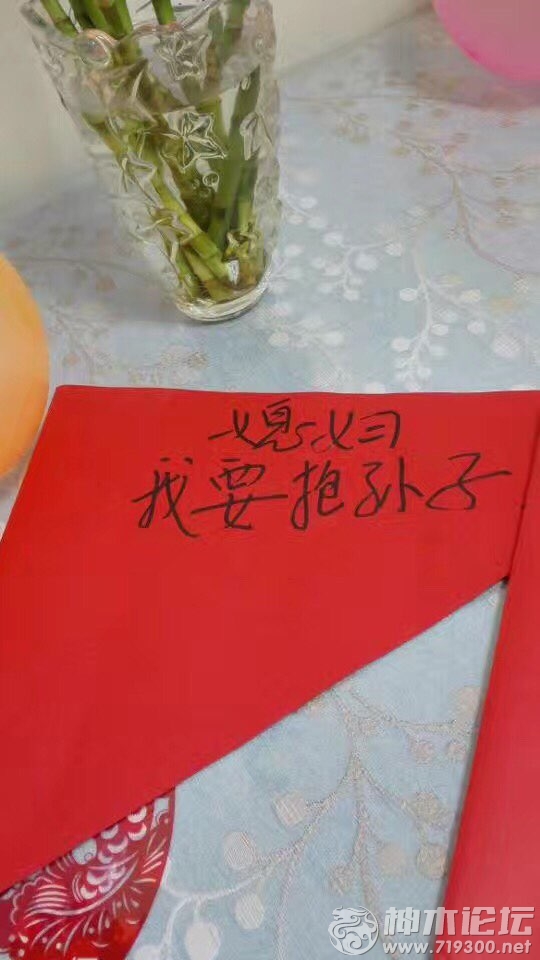 媳妇
我要抱孙子
神木论坛
www.719300.net